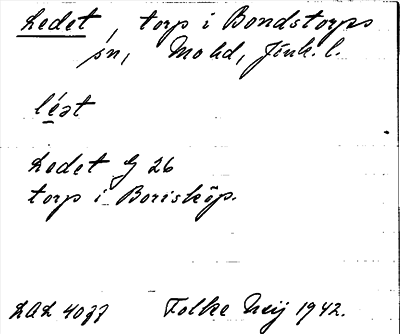 Ledet, torp i Bondstorps
sn, Mo hd, Jönk. l.
léət
Ledet G 26
torp i Borisköp.
Folke Neij 1942.